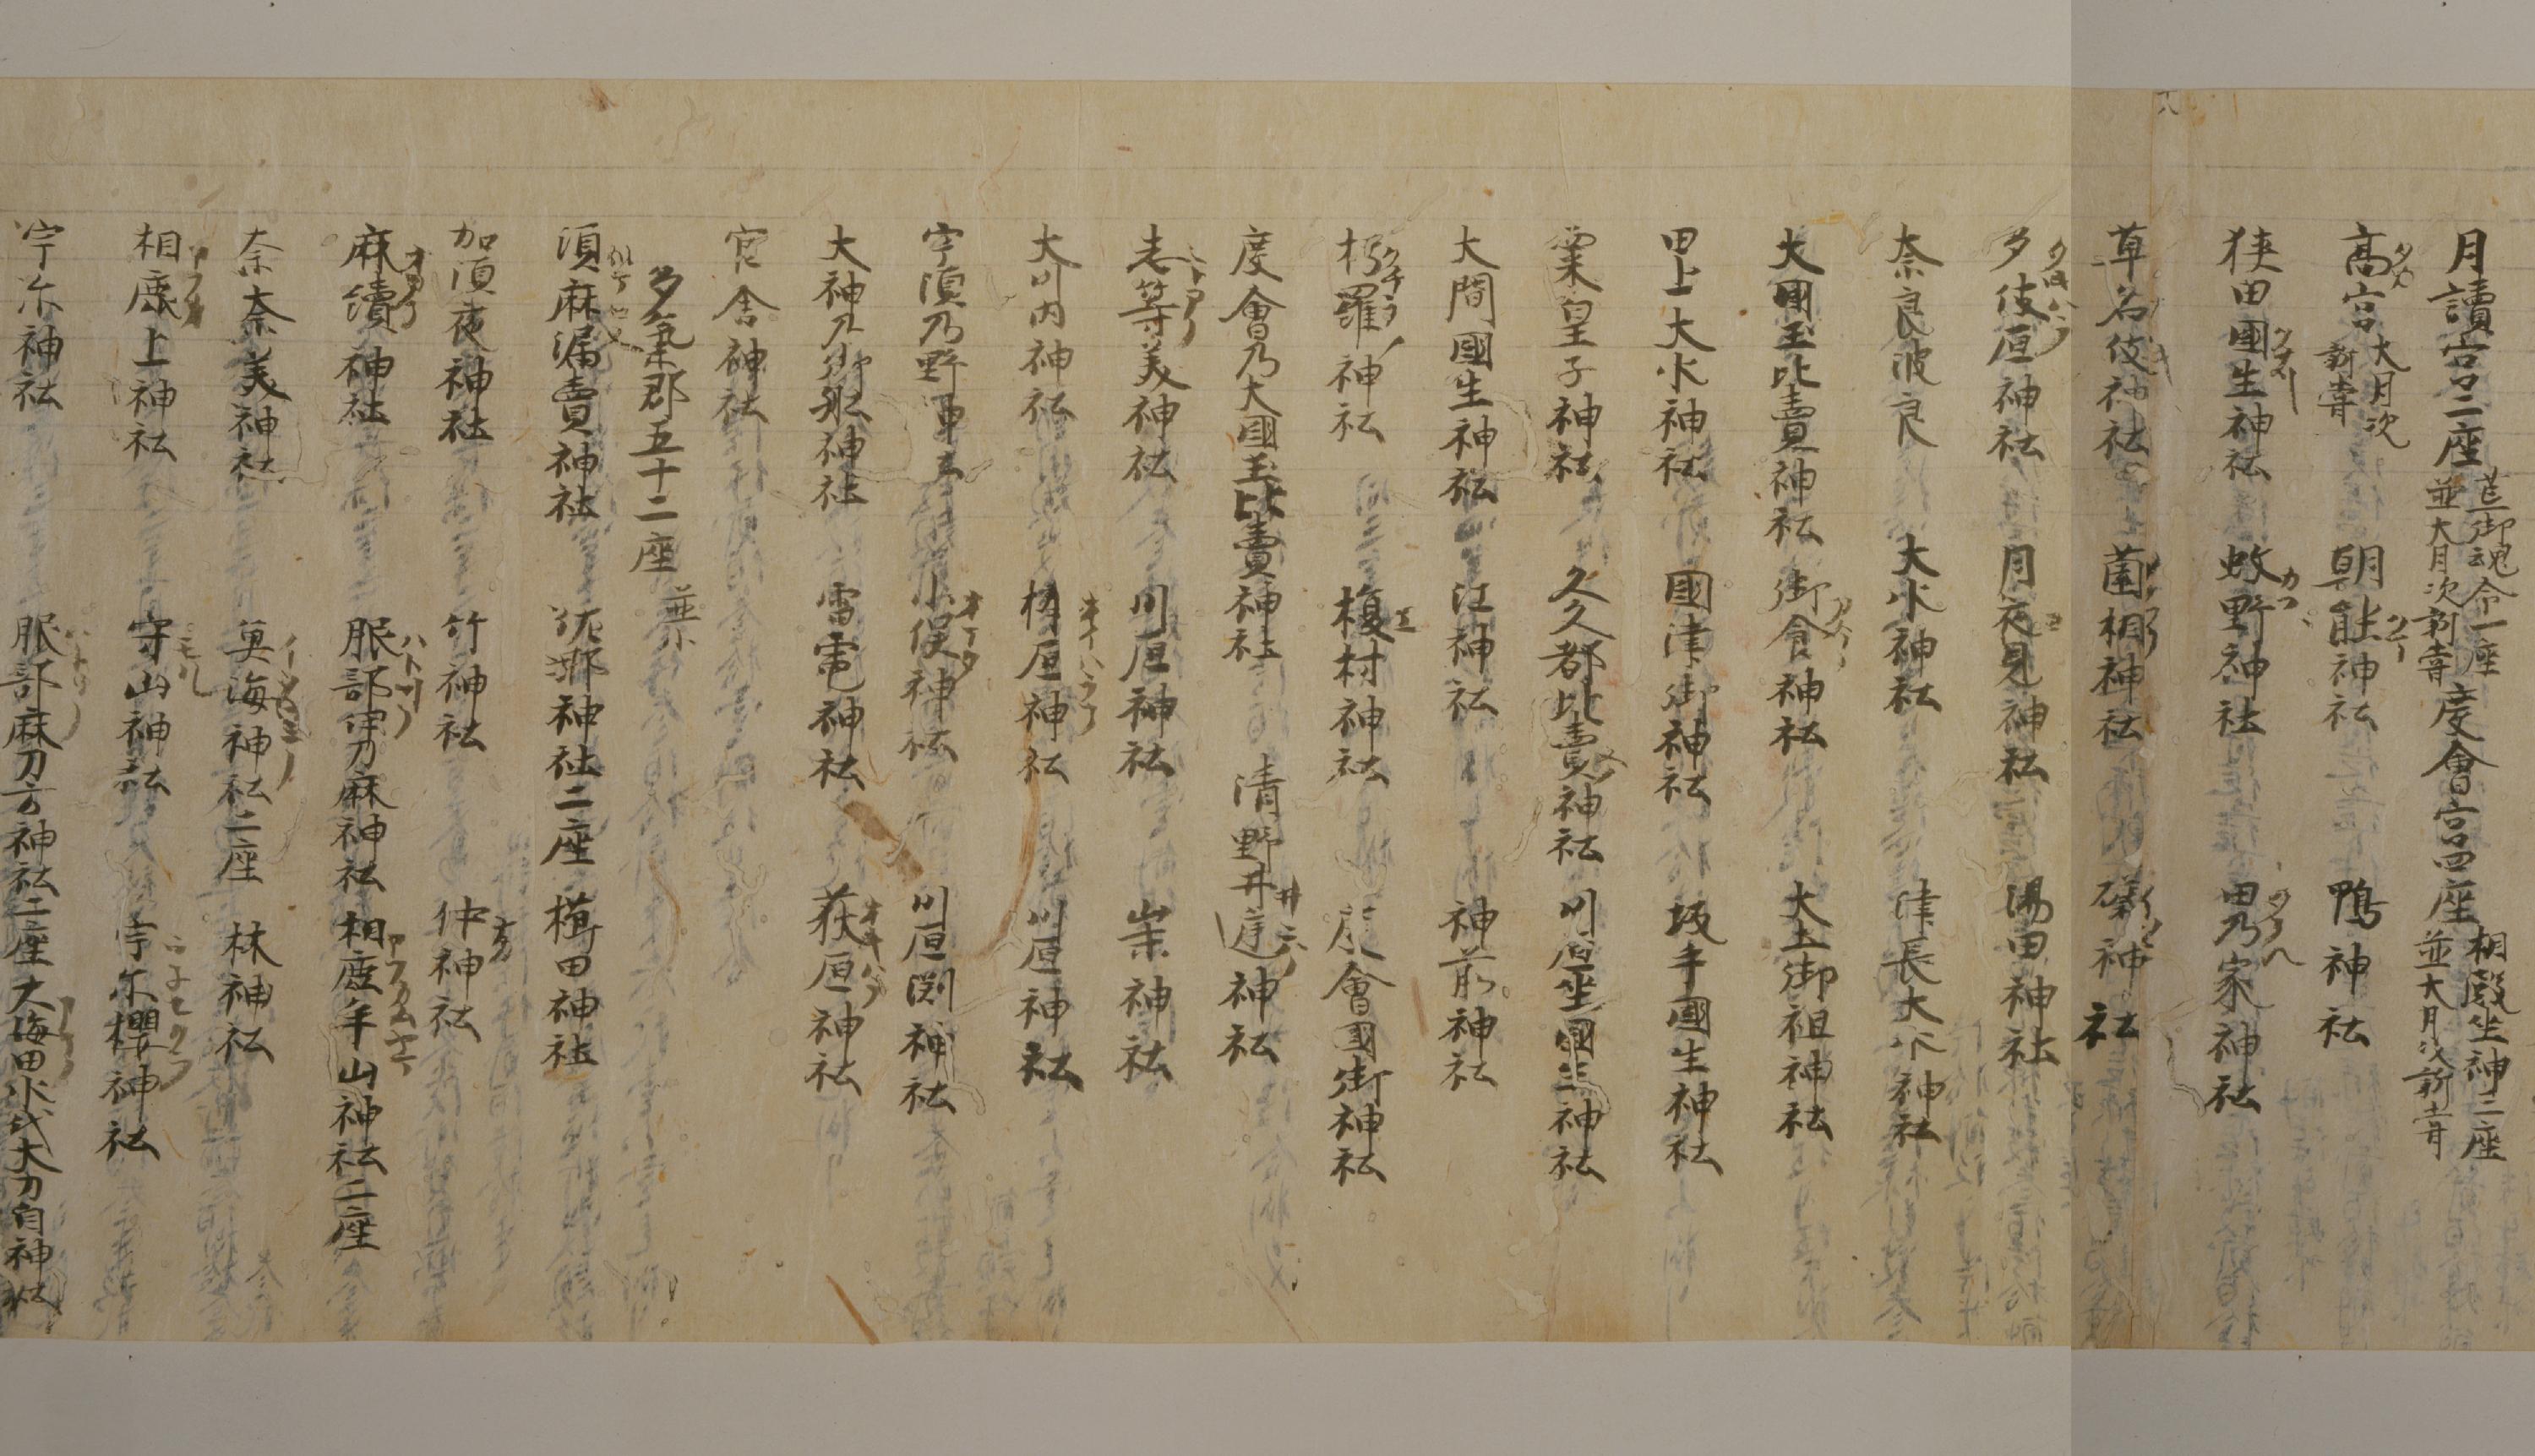 月讀宮二座 荒御魂命一座 並大月次新嘗 度會宮四座 相殿坐神三座 並大月次新嘗
高宮 大月次新嘗 朝熊神社 鴨神社
狭田國生神社 蚊野神社 田乃家神社
草名伎神社 薗相神社 礒神社
多伎原神社 月夜見神社 湯田神社
奈良波良 大水神社 津長大水神社
大國玉比賣神社 御食神社 大土御祖神社
田上大水神社 國津御神社 坂手國生神社
粟皇子神社 久久都比賣神社 川原坐國玉神社
大間國生神社 江神社 神前神社
朽羅神社 榎村神社 度會國御神社
度會乃大國玉比賣神社 清野井庭神社
志等美神社 川原神社 山末神社
大川内神社 橋原神社 川原神社
宇須乃野 小俣神社 川原渕神社
大神乃御船神社 雷電神社 荻原神社
官舎神社
多氣郡五十二座 並小
須麻漏賣神社 神社二座 櫛田神社
加須夜神社 竹神社 仲神社
麻續神社 服部伊刀麻神社 相鹿牟山神社二座
奈奈美神社 魚海神社二座 林神社
相鹿上神社 守山神社 宇尓櫻神社
宇尓神社 服部麻刀方神社二座 大海田水代大刀自神社